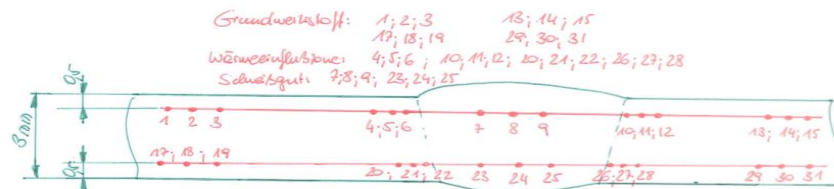 Grundwerkstoff: 1; 2; 3 13; 14; 15
17; 18; 19 29, 30, 31
Wärmeeinflußzone: 4; 5; 6 ; 10, 11, 12; 20; 21; 22; 26; 27; 28
Schweißgut: 7; 8; 9; 23; 24; 25
0,5
8mm
1 2 3 4; 5; 6 7 8 9 10, 11; 12 13; 14; 15
17; 18; 19 20; 21; 22 23 24 25 26; 27; 28 29 30 31
0,5